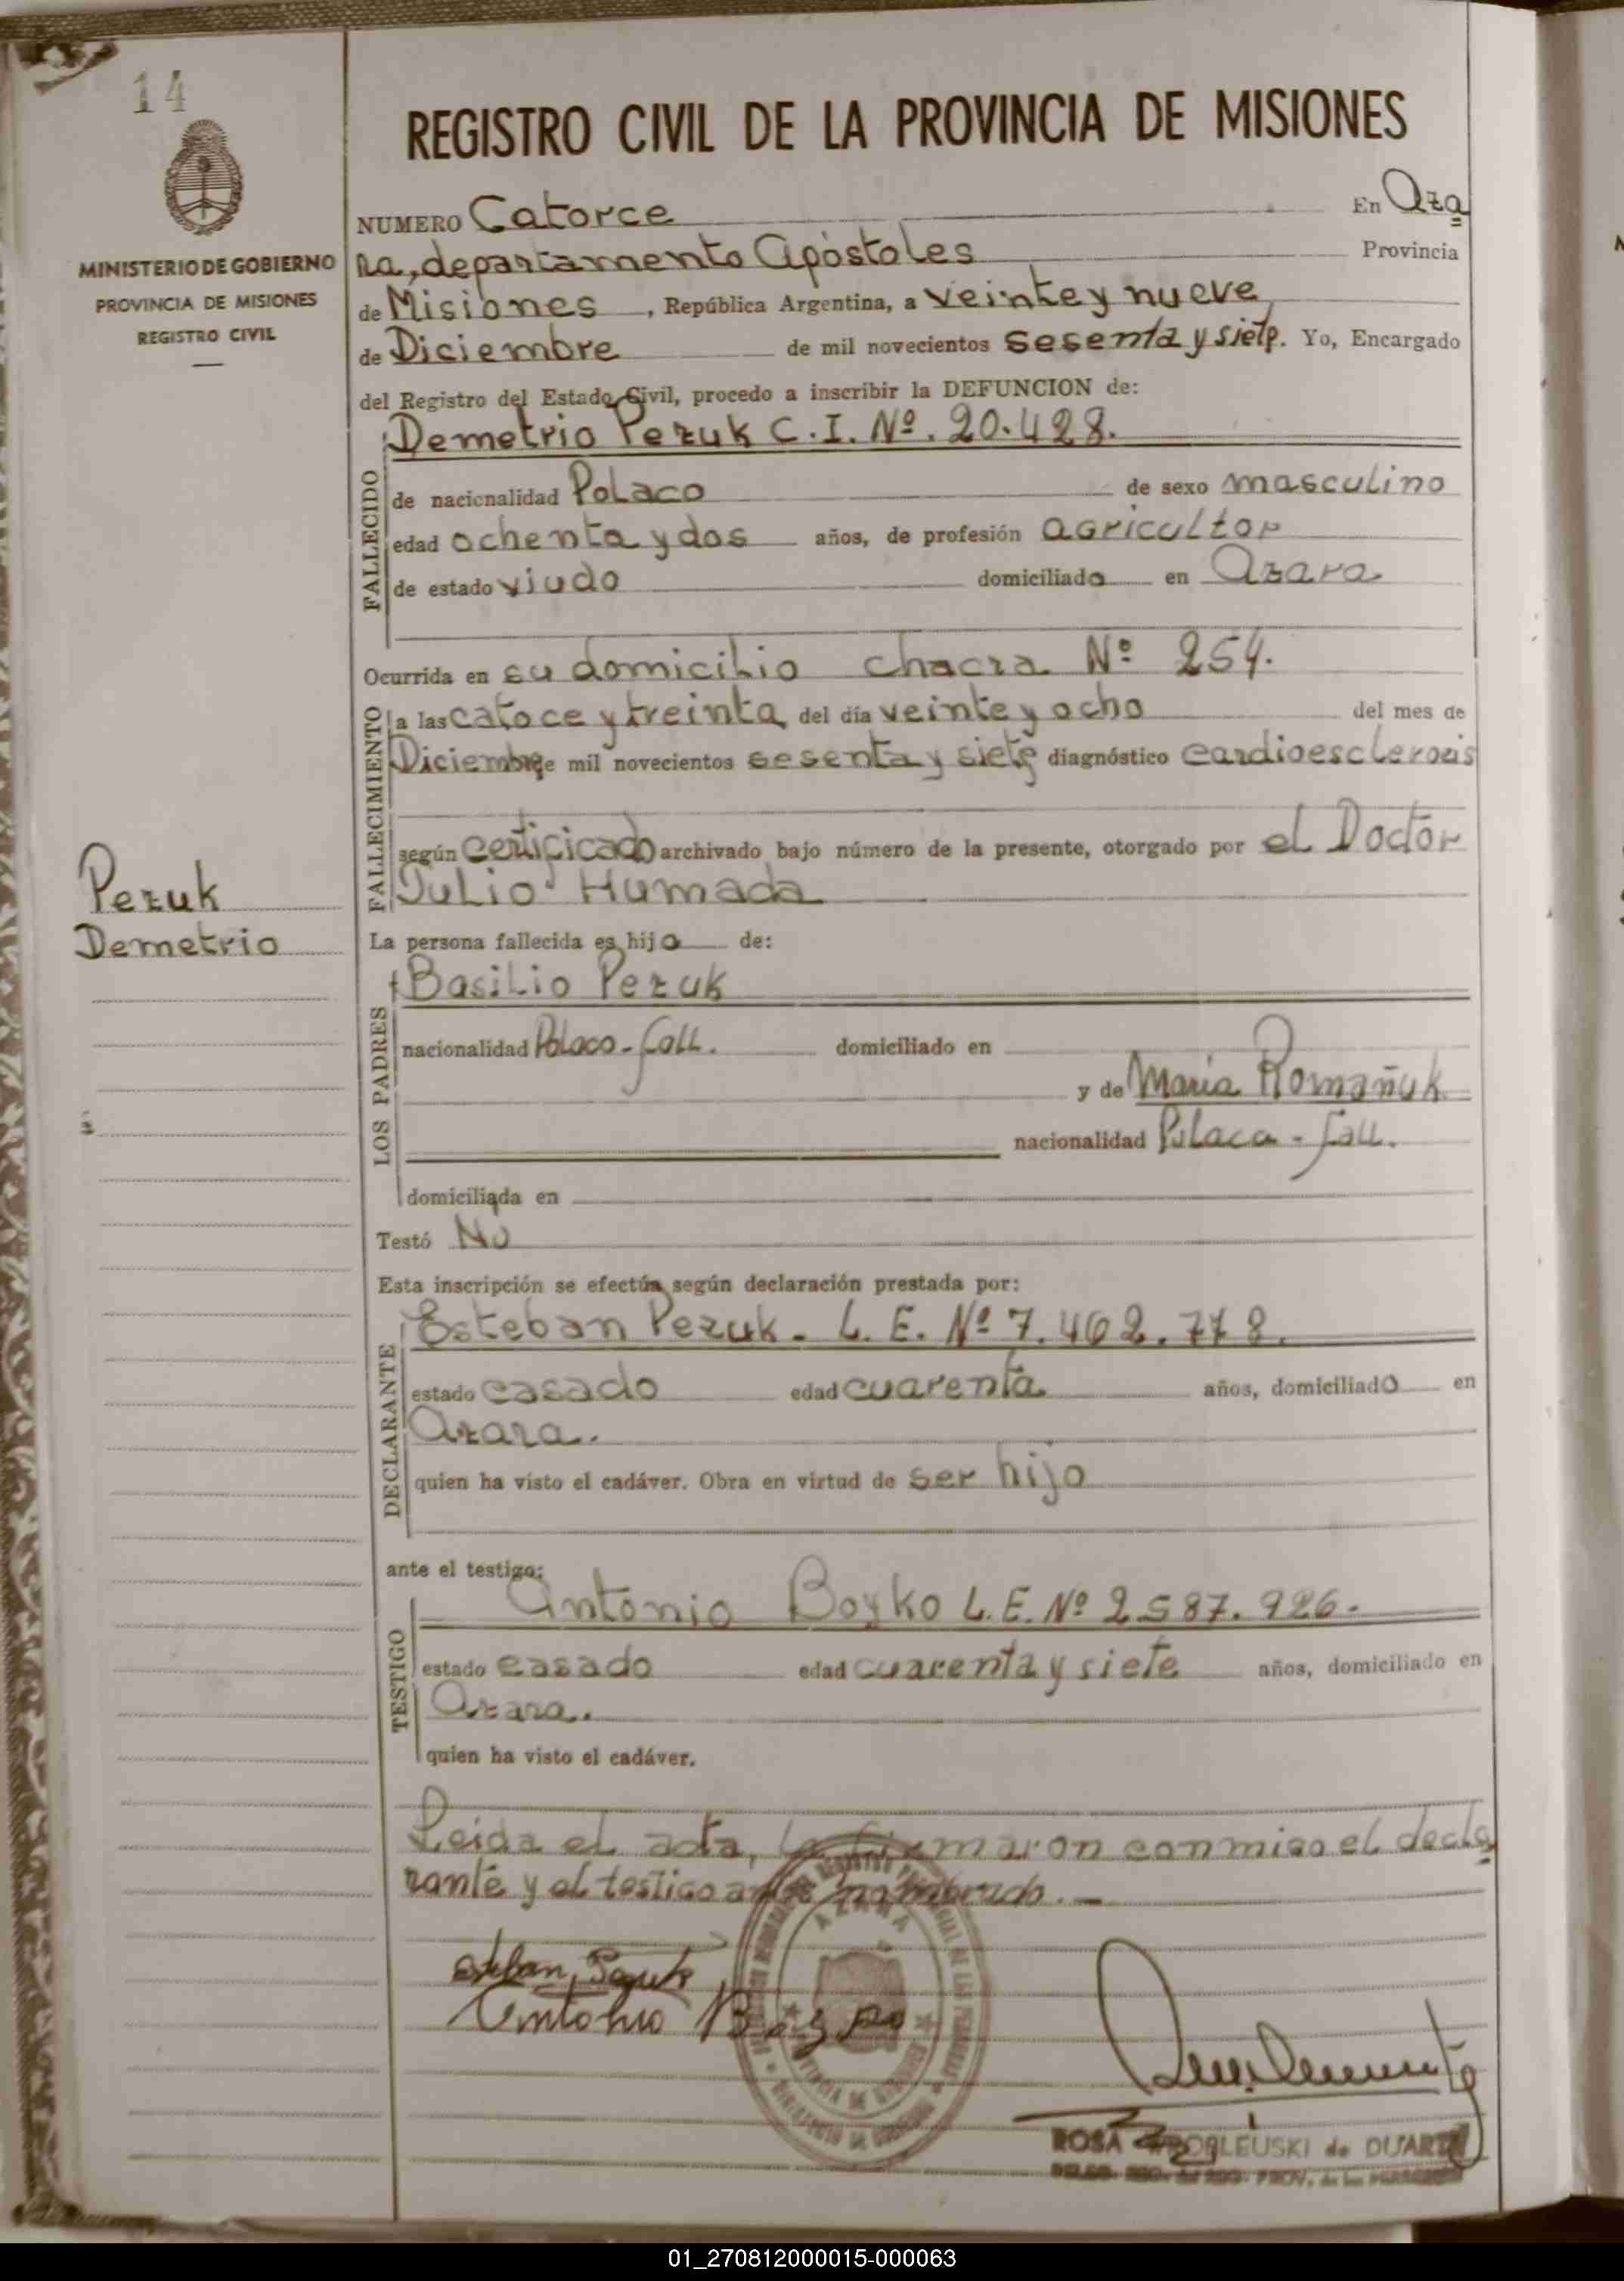 14
REGISTRO CIVIL DE LA PROVINCIA DE MISIONES
MINISTERIO DE GOBIERNO
PROVINCIA DE MISIONES
REGISTRO CIVIL
NUMERO Catorce En Aza
ra, departamento Apóstoles Provincia
de Misiones, República Argentina, a veinte y nueve
de Diciembre de mil novecientos sesenta y siete. Yo, Encargado
del Registro del Estado Civil, procedo a inscribir la DEFUNCION de:
Demetrio Pezuk C.I. Nº. 20.428.
FALLECIDO
de nacionalidad Polaco de sexo masculino
edad ochenta y dos años, de profesión agricultor
de estado viudo domiciliado en Azara
Ocurrida en su domicilio chacra Nº 254.
FALLECIMIENTO
a las catoce y treinta del día veinte y ocho del mes de
Diciembre de mil novecientos sesenta y siete diagnóstico cardioesclerosis
según certificado archivado bajo número de la presente, otorgado por el Doctor
Julio Humada
Pezuk
Demetrio
La persona fallecida es hijo de:
Basilio Pezuk
LOS PADRES
nacionalidad Polaco - fall. domiciliado en
y de María Romañuk
nacionalidad Polaca - fall.
domiciliada en
Testó No
Esta inscripción se efectúa según declaración prestada por:
Esteban Pezuk - L. E. Nº 7.462.778.
DECLARANTE
estado casado edad cuarenta años, domiciliado en
Azara.
quien ha visto el cadáver. Obra en virtud de ser hijo
ante el testigo:
Antonio Boyko L.E. Nº 2587.926.
TESTIGO
estado casado edad cuarenta y siete años, domiciliado en
Azara.
quien ha visto el cadáver.
Leida el acta, la firmaron conmigo el decla
rante y el testigo antes nombrado.-
Esteban Pezuk
Antonio Boyko
AZARA
ROSA de DUARTE
01_270812000015-000063